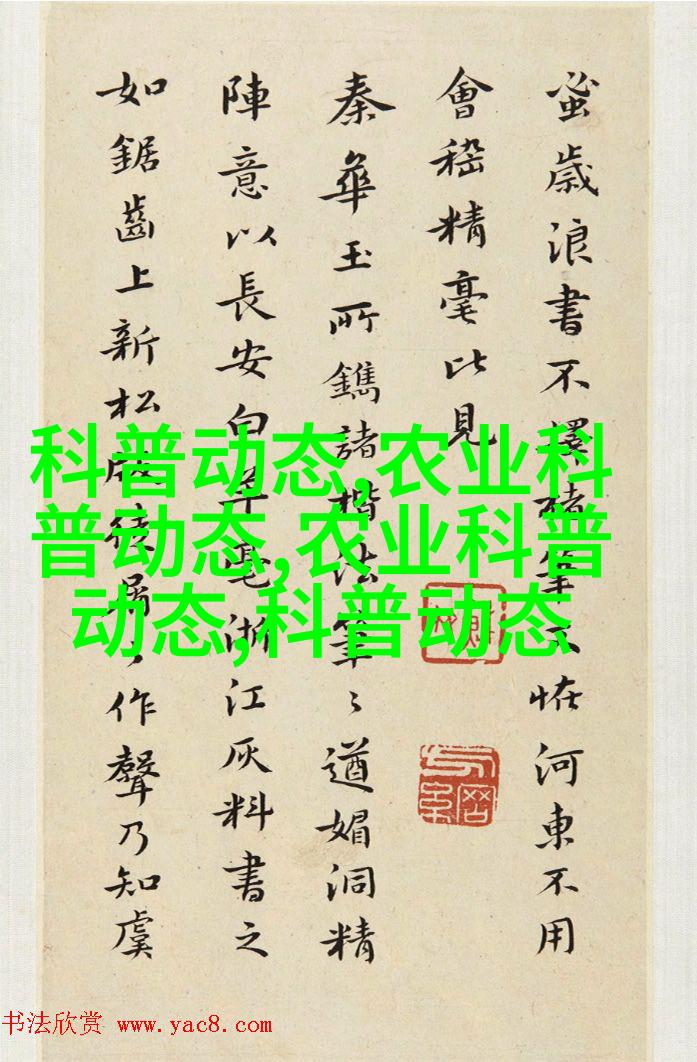 蚤歲浪書不擇筆恠河東不用
會稽精毫比見
秦華玉所鐫諸楷法筆〻遒媚洞精
陣意以長安白羊毫浙江灰料書之
如鋸齒上新松作聲乃知虞
科普动态,农业科
普动态,农业科普
动态,科普动态
书法欣赏 www.yac8.com